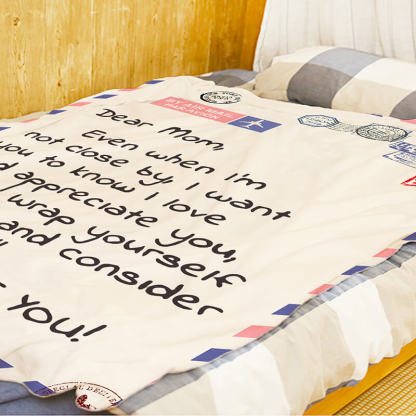 BY AIR MAIL
PAR AVION
Dear Mom,
Even when i'm
not close by, I want
you to know I love
appreciate you,
wrap yourself
and consider
YOU!